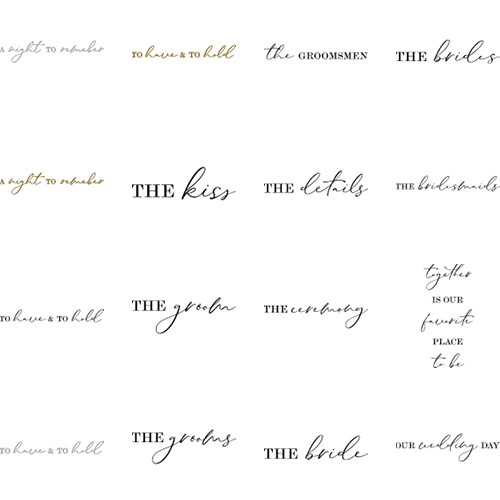 A night TO remeber
TO have & TO hold
the GROOMSMEN
THE brides
A night TO remeber
THE kiss
THE details
THE bridesmaids
TO have & TO hold
THE groom
THE ceremony
together
IS OUR
favorite
PLACE
to be
TO have & TO hold
THE grooms
THE bride
OUR wedding DAY